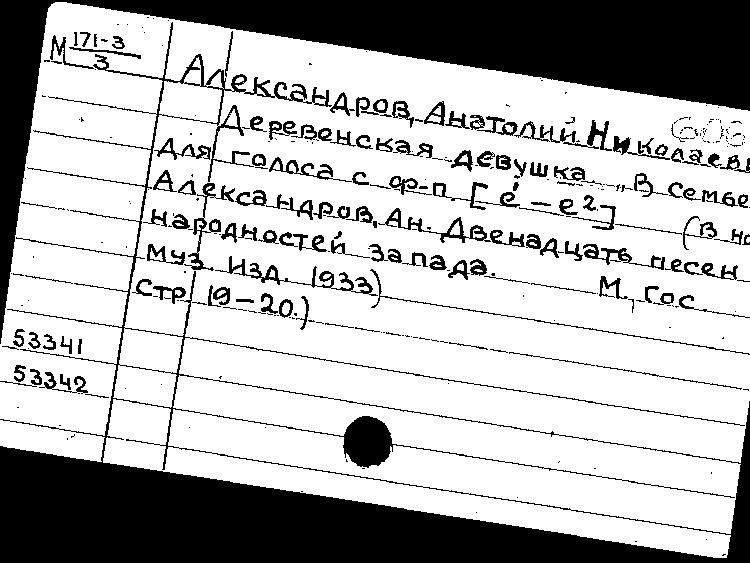 М 171-3
3
Александров, Анатолий Николаеви
Деревенская девушка. „В семье
для голоса с ф-п. [e¹ – e²]
(В но
Александров, Ан. Двенадцать песен
народностей запада. М., Гос.
Муз. Изд. 1933)
Стр 19–20.)
53341
53342